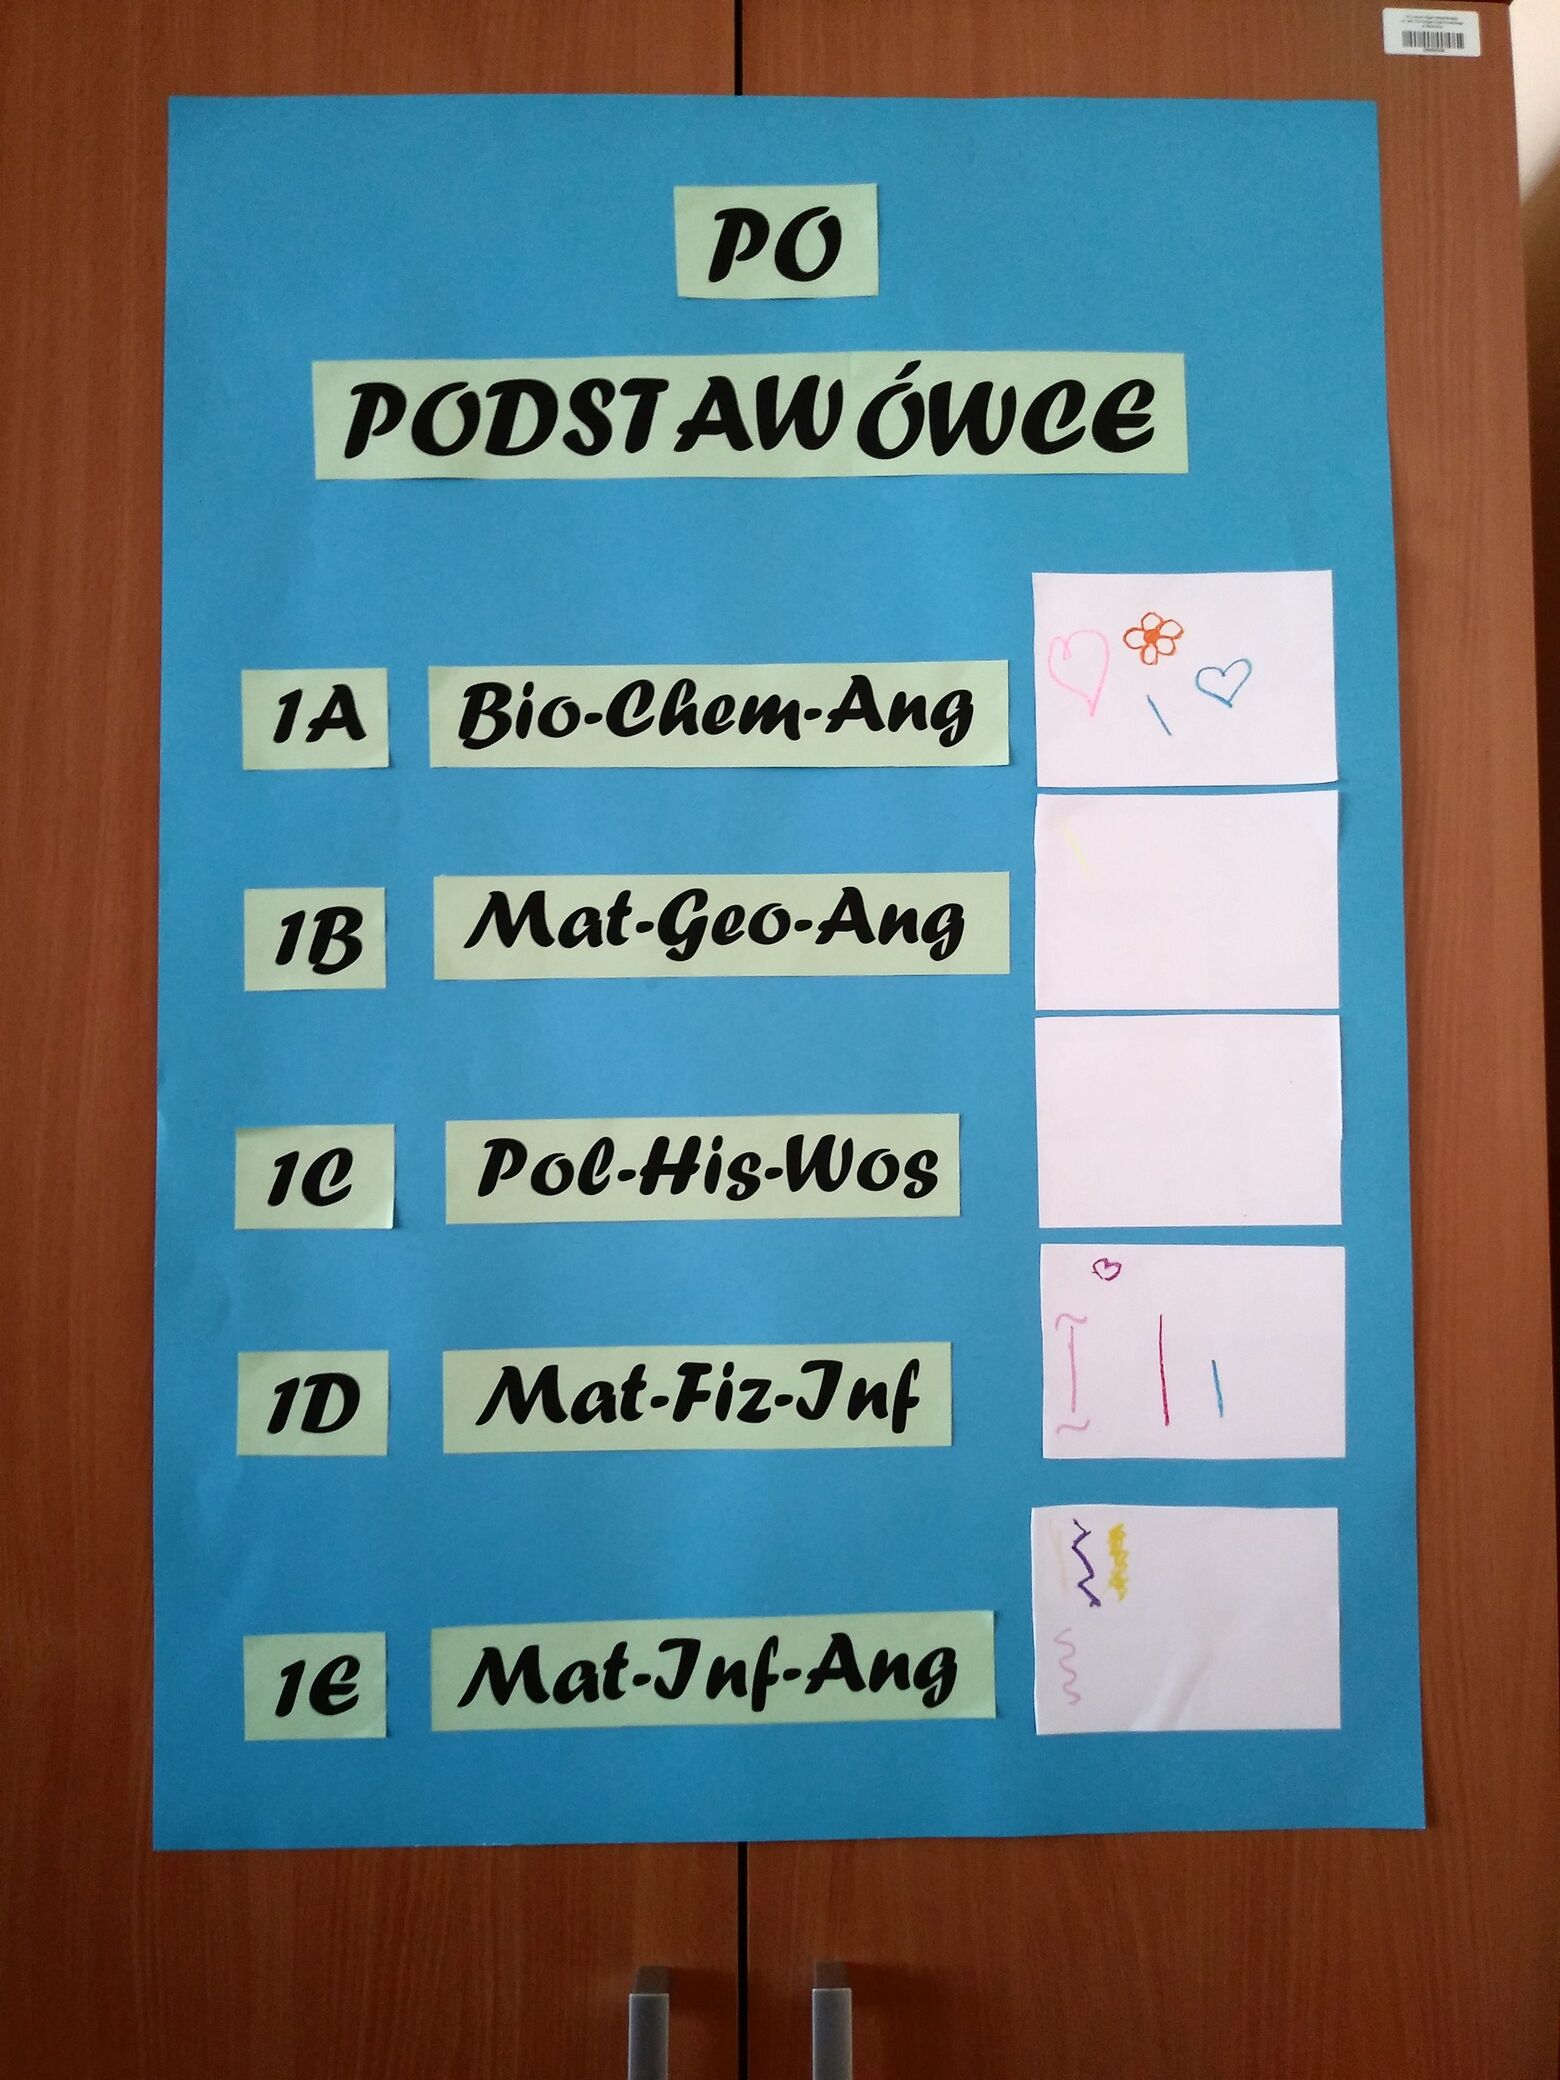 PO
PODSTAWÓWCE
1A Bio-Chem-Ang
1B Mat-Geo-Ang
1C Pol-His-Wos
1D Mat-Fiz-Inf
1E Mat-Inf-Ang